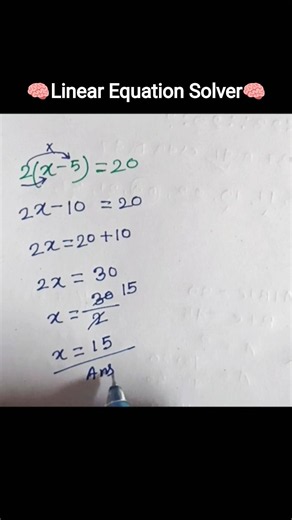 🧠Linear Equation Solver🧠
x
2(x-5)=20
2x-10 =20
2x=20+10
2x = 30
x = 30/2 15
x = 15
Ans